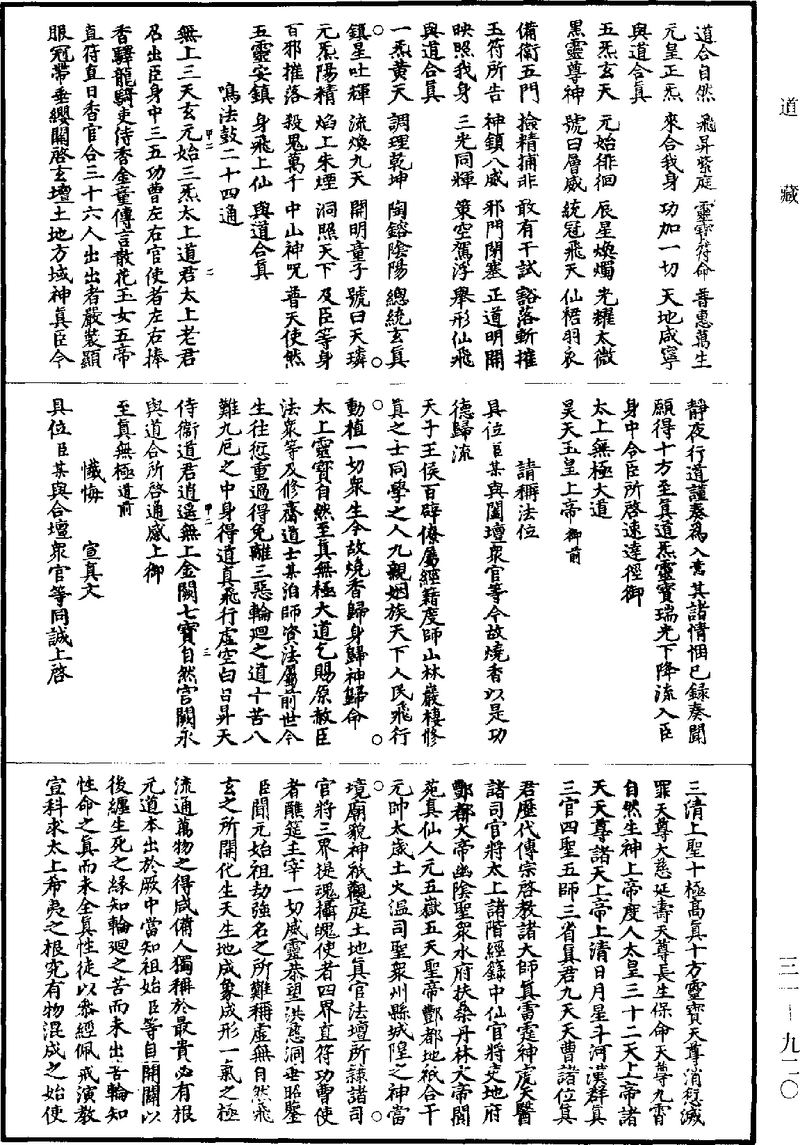 道藏
道合自然　飛昇紫庭　靈寶符命　普惠萬生
元皇正炁　來合我身　功加一切　天地咸寧
與道合真
五炁玄天　元始徘徊　辰星煥燭　光耀太微
黑靈尊神　號曰層威　統冠飛天　仙裙羽衣
備衛五門　撿精捕非　敢有干試　豁落斬摧
玉符所告　神鎮八威　邪門閉塞　正道明開
映照我身　三光同輝　策空駕浮　舉形仙飛
與道合真
一炁黃天　調理乾坤　陶鎔陰陽　總統玄真
鎮星吐輝　流煥九天　開明童子　號曰天璘
元炁陽精　焰上朱煙　洞照天下　及臣等身
百邪摧落　殺鬼萬千　中山神呪　普天使然
五靈安鎮　身飛上仙　與道合真
鳴法鼓二十四通
無上三天玄元始三炁太上道君太上老君
召出臣身中三五功曹左右官使者左右捧
香驛龍騎吏侍香金童傳言散花玉女五帝
直符直日香官合三十六人出出者嚴裝顯
服冠帶垂纓關啓玄壇土地方域神真臣今
靜夜行道謹奏為入意其諸情悃已錄奏聞
願得十方至真道炁靈寶瑞光下降流入臣
身中令臣所啓速達徑御
太上無極大道
昊天玉皇上帝御前
請稱法位
具位臣某與闔壇衆官等今故燒香以是功
德歸流
天子王侯百辟僚屬經籍度師山林巖棲修
真之士同學之人九親姻族天下人民飛行
動植一切衆生今故燒香歸身歸神歸命
太上靈寶自然至真無極大道乞賜原赦臣
法衆等及修齋道士某洎師資法屬前世今
生往愆重過得免離三惡輪廻之道十苦八
難九厄之中身得道真飛行虛空白日昇天
侍衛道君逍遙無上金闕七寶自然宮闕永
與道合所啓通感上御
至真無極道前
懺悔　宣真文
具位臣某與合壇衆官等同誠上啓
三清上聖十極高真十方靈寶天尊消愆滅
罪天尊大慈延壽天尊長生保命天尊九霄
自然生神上帝度人太皇三十二天上帝諸
天天尊諸天上帝上清日月星斗河漢群真
三官四聖五師三省真君九天天曹諸位真
君歷代傳宗啓教諸大師真雷霆神虎天醫
諸司官將太上諸階經籙中仙官將吏地府
酆都大帝幽陰聖衆水府扶桑丹林大帝閬
苑真仙人元五嶽五天聖帝酆都地祇合干
元帥太歲土火瘟司聖衆州縣城隍之神當
境廟貌神祇觀庭土地真官法壇所隸諸司
官將三界提魂攝魄使者四界直符功曹使
者醮筵主宰一切威靈恭望洪慈洞垂昭鑒
臣聞元始祖劫強名之所難稱虛無自然飛
玄之所開化生天生地成象成形一氣之極
流通萬物之得咸備人獨稱於最貴必有根
元道本出於厥中當知祖始臣等自開闢以
後纏生死之緣知輪廻之苦而未出苦輪知
性命之真而未全真性徒以參經佩戒演教
宣科求太上希夷之根究有物混成之始使
三一—九二〇